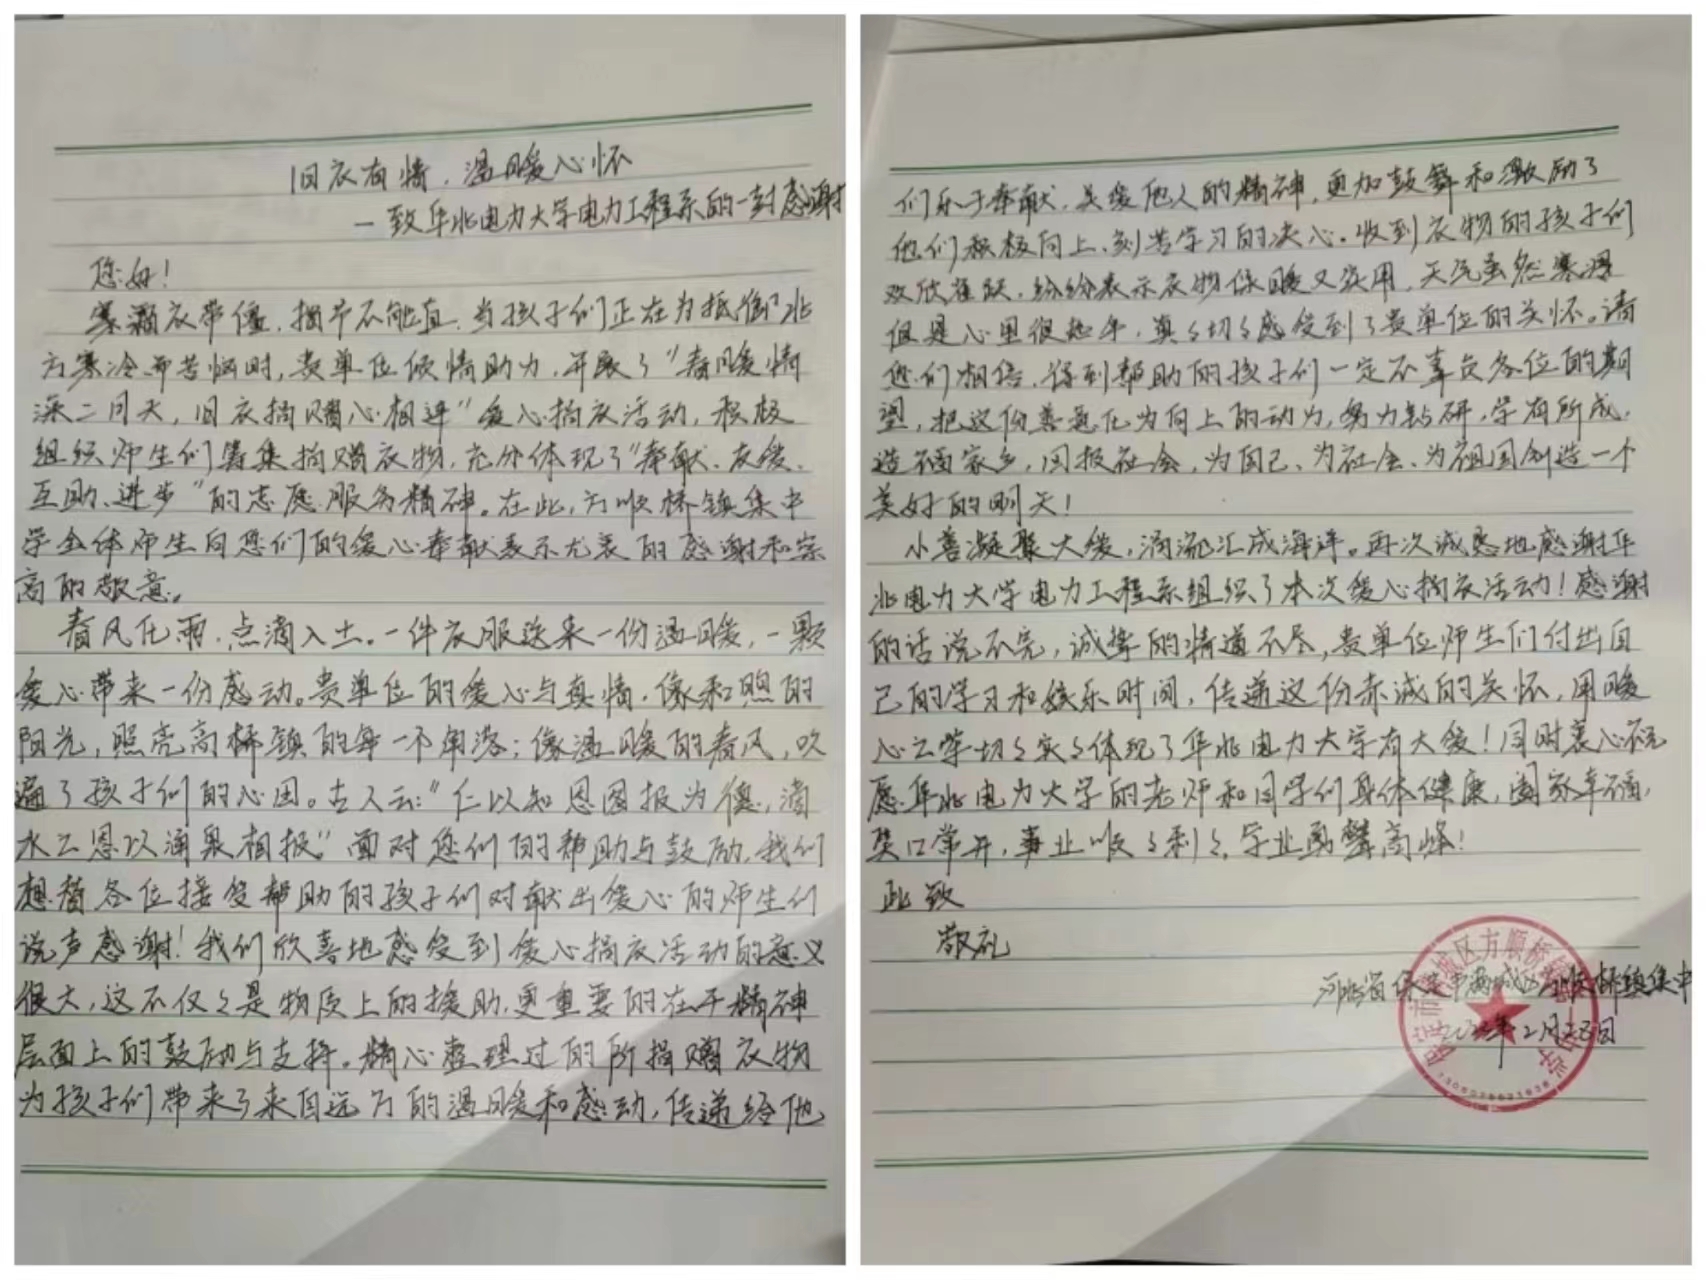 旧衣有情，温暖心怀
一致华北电力大学电力工程系的一封感谢
您好！
寒霜衣带僵，捐节不能直，当孩子们正在为抵御北
方寒冷而苦恼时，贵单位倾情助力，开展了“春暖情
深二月天，旧衣捐赠心相连”爱心捐衣活动，积极
组织师生们筹集捐赠衣物，充分体现了“奉献、友爱、
互助、进步”的志愿服务精神。在此，方顺桥镇集中
学全体师生向您们的爱心奉献表示尤衷的感谢和崇
高的敬意。
春风化雨，点滴入土。一件衣服送来一份温暖，一颗
爱心带来一份感动。贵单位的爱心与真情，像和煦的
阳光，照亮高桥镇的每一个角落；像温暖的春风，吹
遍了孩子们的心田。古人云：“仁以知恩图报为德，滴
水之恩以涌泉相报。”面对您们的帮助与鼓励，我们
想替各位接受帮助的孩子们对献出爱心的师生们
说声感谢！我们欣喜地感受到爱心捐衣活动的意义
很大，这不仅仅是物质上的援助，更重要的在于精神
层面上的鼓励与支持。精心整理过的所捐赠衣物
为孩子们带来了来自远方的温暖和感动，传递给他
们乐于奉献，关爱他人的精神，更加鼓舞和激励了
他们积极向上、刻苦学习的决心。收到衣物的孩子们
欢欣雀跃，纷纷表示衣物保暖又实用，天气虽然寒冷
但是心里很热乎，真真切切感受到了贵单位的关怀。请
您们相信，得到帮助的孩子们一定不辜负各位的期
望，把这份善意化为向上的动力，努力钻研，学有所成，
造福家乡，回报社会，为自己、为社会、为祖国创造一个
美好的明天！
小善凝聚大爱，涓流汇成海洋。再次诚恳地感谢华
北电力大学电力工程系组织了本次爱心捐衣活动！感谢
的话说不完，诚挚的情道不尽，贵单位师生们付出自
己的学习和娱乐时间，传递这份赤诚的关怀，用暖
心之举切切实实体现了华北电力大学有大爱！同时衷心祝
愿华北电力大学的老师和同学们身体健康，阖家幸福，
笑口常开，事业顺顺利利，学业勇攀高峰！
此致
敬礼
河北省保定市满城区方顺桥镇集中
年2月 日